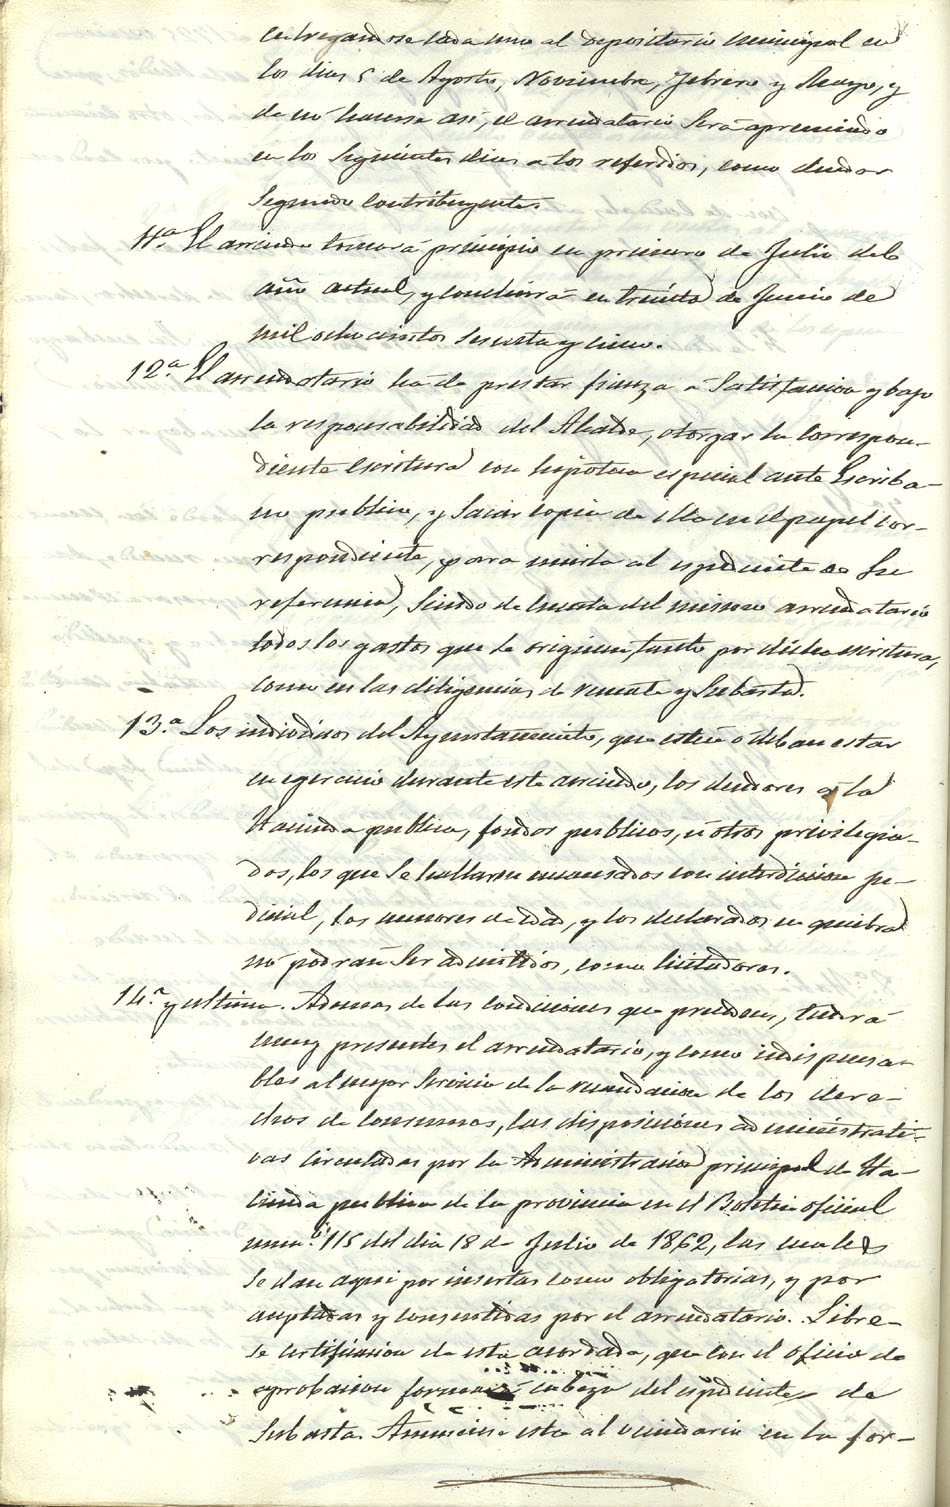 entregandose cada uno al depositario municipal en
los dias 5 de Agosto, Noviembre, Febrero y Mayo, y
de nó hacerse asi, el arrendatario Será apremiado
en los Siguientes dias a los referidos, como deudor
Segundo Contribuyente.
11.ª El arriendo tomará principio en primero de Julio del
año actual, y concluirá en treinta de Junio de
mil ochocientos sesenta y cinco.
12.ª El arrendatario ha de prestar fianza a Satisfaccion y bajo
la responsabilidad del Alcalde, otorgar la correspon-
diente escritura con hipoteca especial ante Escriba-
no publico, y Sacar copia de ella en el papel cor-
respondiente, para unirla al espediente de Su
referencia, Siendo de cuenta del mismo arrendatario
todos los gastos que se originen, tanto por dicha escritura,
como en las diligencias de remate y Subasta.
13.ª Los individuos del Ayuntamiento, que esten ó deban estar
en egercicio durante este arriendo, los deudores a la
Hacienda publica, fondos publicos, ú otros privilegia-
dos, los que Se hallaren encausados con interdiccion ju-
dicial, los menores de edad, y los declarados en quiebra
nó podrán Ser admitidos, como licitadores.
14.ª y ultima. Ademas de las condiciones que preceden, tendrá
muy presentes el arrendatario, y como indispensa-
bles al mejor Servicio de la recaudacion de los dere-
chos de consumos, las disposiciones administrati-
vas circuladas por la Administracion principal de Ha-
cienda publica de la provincia en el Boletin oficial
num.º 115 del dia 18 de Julio de 1862, las cuales
Se dan aqui por insertas como obligatorias, y por
aceptadas y consentidas por el arrendatario. Libre-
se certificacion de este acordado, que con el oficio de
aprobacion formará cabeza del espediente de
Subasta. Anunciese esta al vecindario en la for-